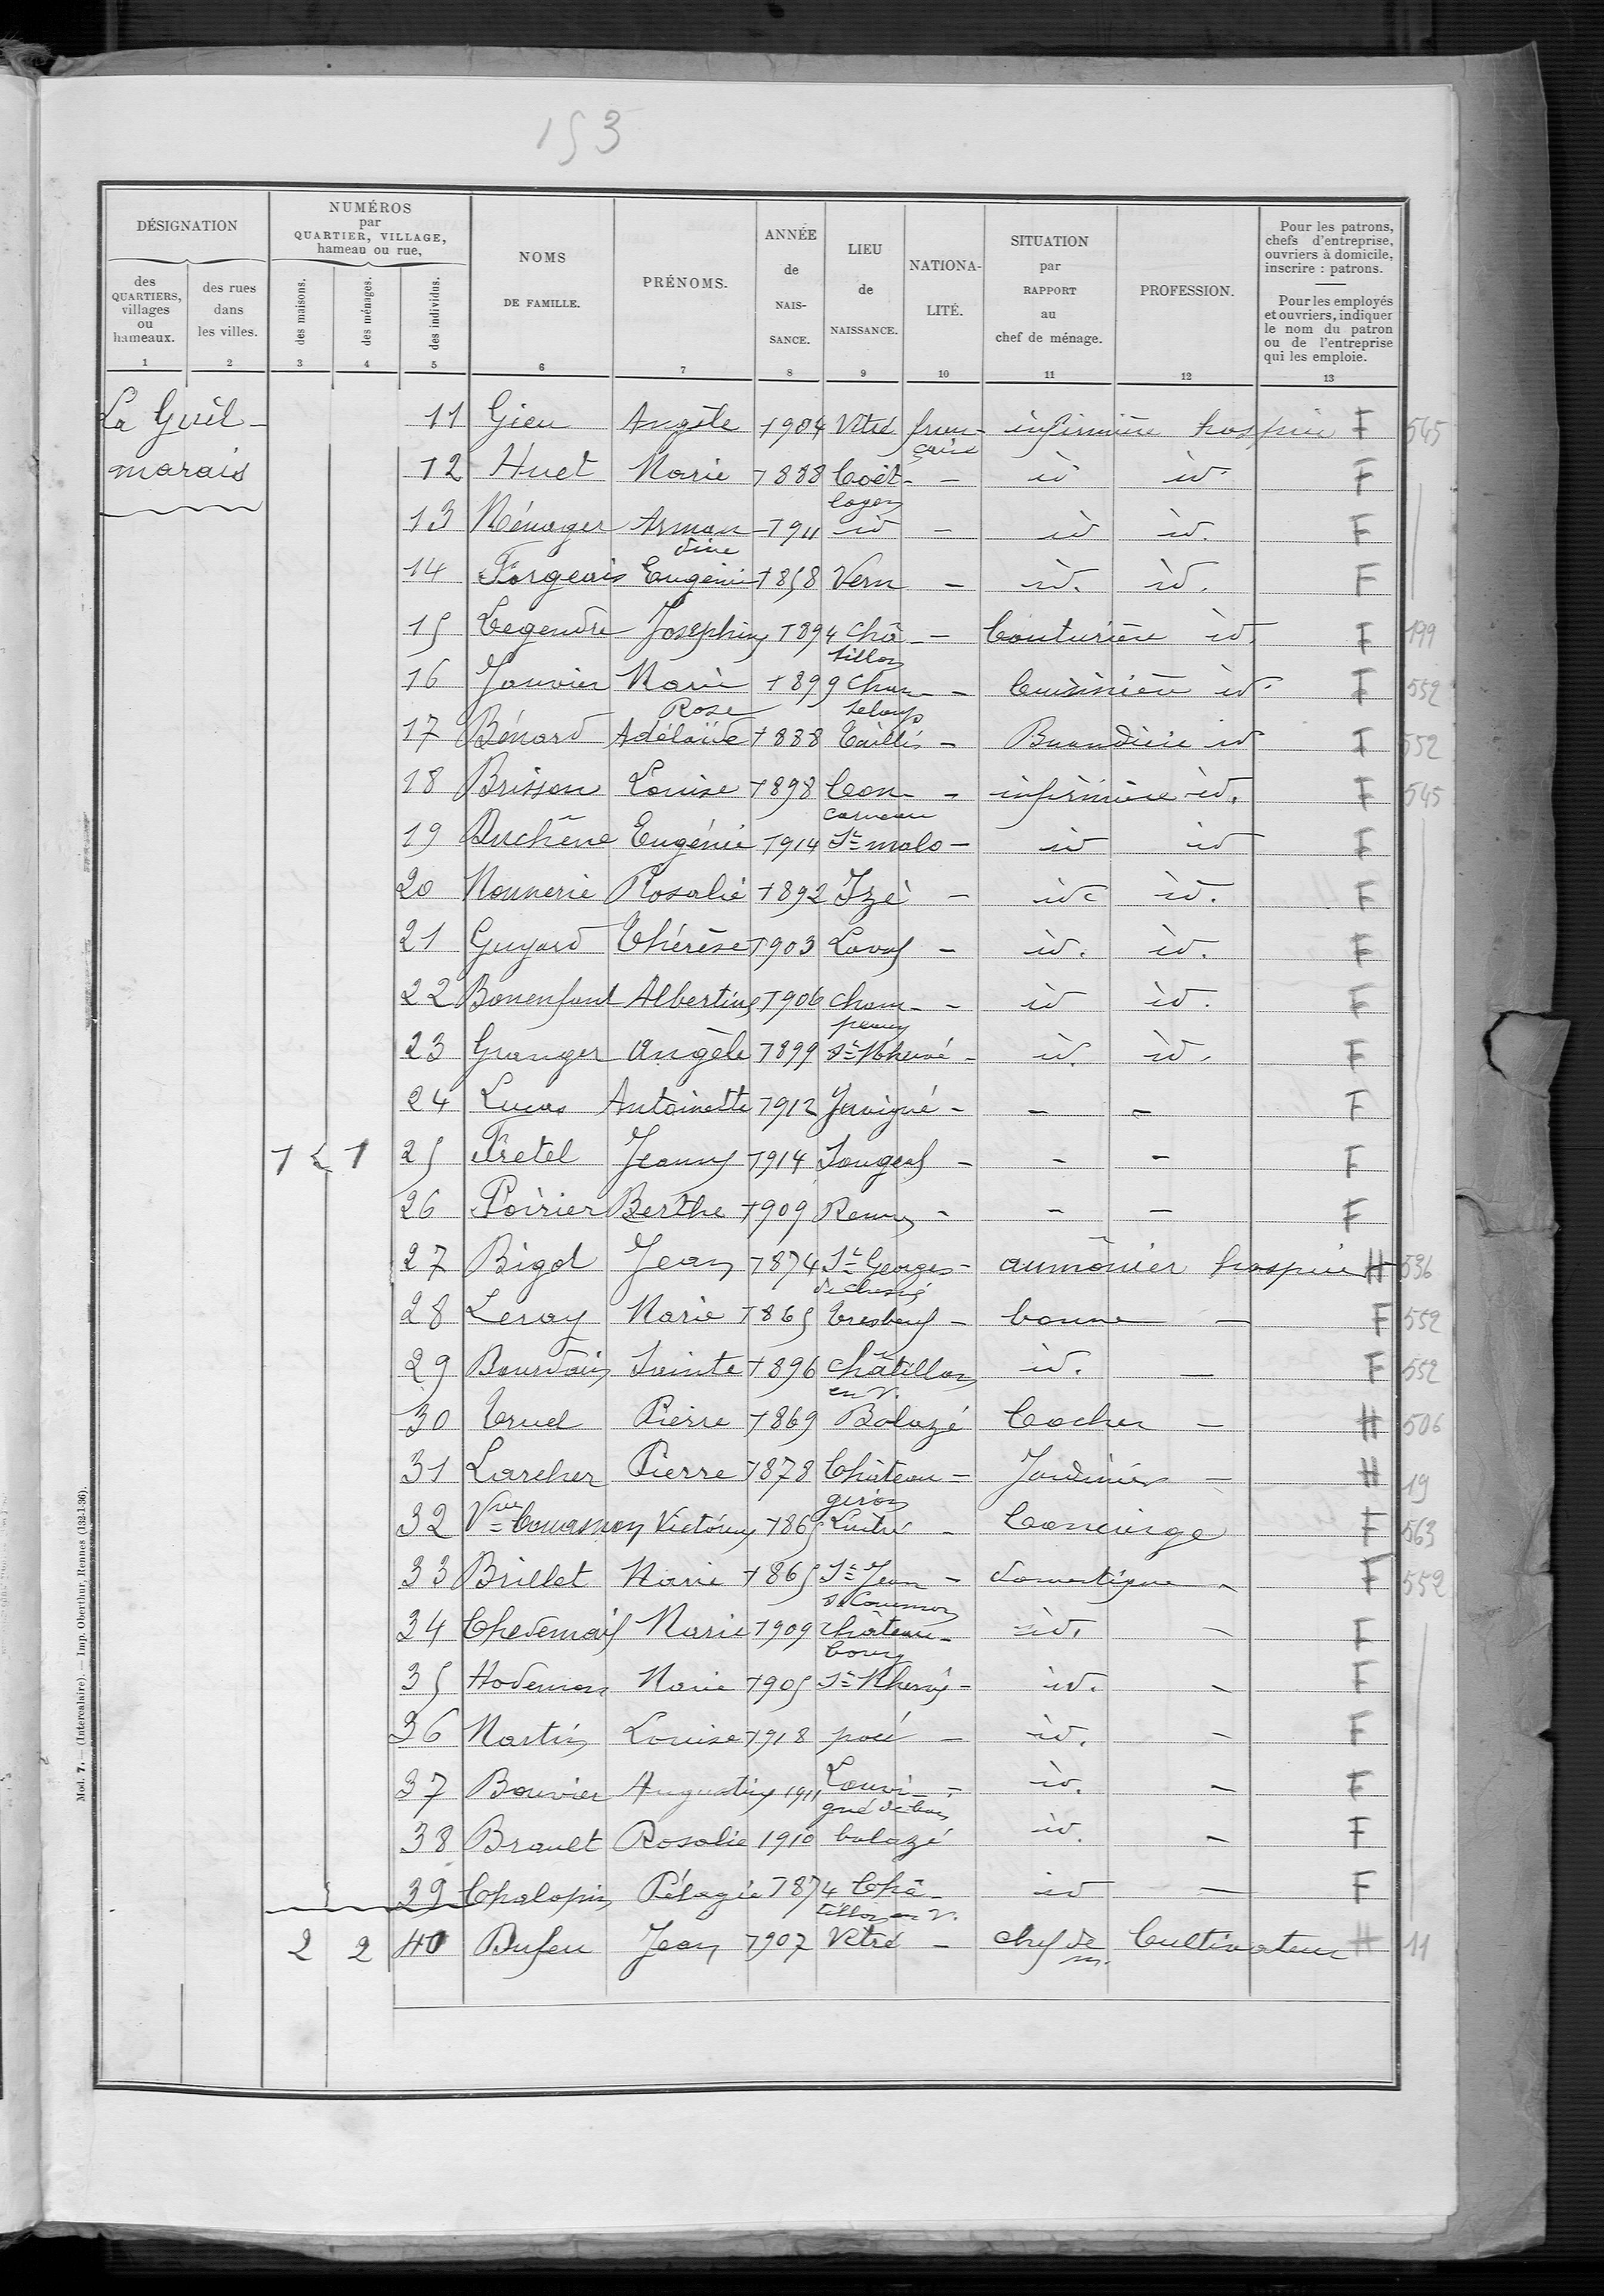 153
DÉSIGNATION
des QUARTIERS, villages ou hameaux.
des rues dans les villes.
NUMÉROS par QUARTIER, VILLAGE, hameau ou rue,
des maisons.
des ménages.
des individus.
NOMS DE FAMILLE.
PRÉNOMS.
ANNÉE de NAISSANCE.
LIEU de NAISSANCE.
NATIONALITÉ.
SITUATION par RAPPORT au chef de ménage.
PROFESSION.
Pour les patrons, chefs d'entreprise, ouvriers à domicile, inscrire : patrons.
Pour les employés et ouvriers, indiquer le nom du patron ou de l'entreprise qui les emploie.
1 2 3 4 5 6 7 8 9 10 11 12 13
La Guil-
marais
11 Gieu Angèle 1904 Vitré fran-çaise infirmière hospice F 545
12 Huet Marie 1888 Coët-logon - id id. F
13 Ménager Arman-dine 1911 id - id id. F
14 Forgeais Eugénie 1858 Vern - id. id. F
15 Legendre Josephine 1894 Châ-tillon - Couturière id. F 199
16 Janvier Marie Rose 1899 Chan-teloup - Cuisinière id. F 552
17 Bénard Adélaïde 1888 Taillis - Buandière id F 552
18 Brisson Louise 1898 Con-carneau - infirmière id. F 545
19 Duchêne Eugénie 1914 St malo - id id F
20 Nonnerie Rosalie 1892 Izé - id id. F
21 Guyard Thérèse 1903 Laval - id. id. F
22 Bonenfant Albertine 1906 Cham-peaux - id id. F
23 Granger Angèle 1899 St Mhervé - id. id. F
24 Lucas Antoinette 1912 Juvigné - - - F
1 1 25 Fretel Jeanne 1914 Fougères - - - F
26 Poirier Berthe 1909 Rennes - - - F
27 Bigot Jean 1874 St Georges de Chesné - aumônier hospice H 536
28 Leray Marie 1865 Tresboeuf - bonne - F 552
29 Bourdais Sainte 1896 Châtillon en V. id. - F 552
30 Truel Pierre 1869 Balazé Cocher - H 506
31 Larcher Pierre 1878 Château-giron - Jardinier - H 19
32 Vve Victorine 1865 Luitré - Concierge F 563
33 Brillet Marie 1865 St Jean s Couesnon - domestique - F 552
34 Chedemail Marie 1909 Château-bourg - id. - F
35 Marie 1905 St Mhervé - id. - F
36 Martin Louise 1918 pocé - id. - F
37 Bouvier Augustine 1911 Louvi-gné de bais - id. - F
38 Brault Rosalie 1910 balazé id. - F
39 Chalopin Pélagie 1874 Châ-tillon en V. id - F
2 2 40 Dufeu Jean 1907 Vitré - chef de m. Cultivateur H 11
Mod. 7. — (Intercalaire). — Imp. Oberthur, Rennes (132-1-36).